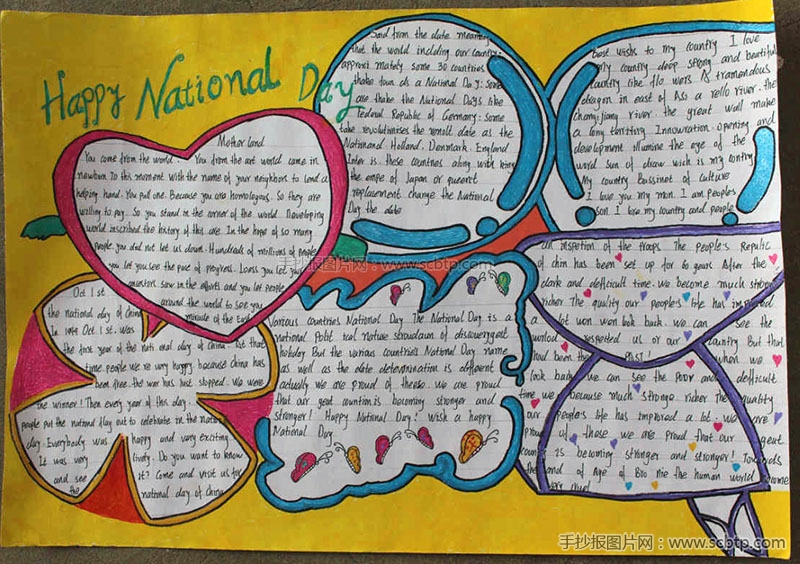 Happy National Day
Mother land
You come from the world. You from the art world came in
newborn To this moment with the name of your neighbors to lend a
helping hand. You pull one. Because you are homologous. So they are
willing to pay. So you stand in the corner of the world. Developing
world inscribed the history of this are. In the hope of so many
people you did not let us down. Hundreds of millions of people
you let you see the pace of progress. Lions you let your
ancestors saw in the efforts and you let people
around the world to see you
miracle of the East
Said from the date meaning
that the world inclding our country.
approxi mately some 30 countries
thake town ds a National Day: some
are thake the National Days like
Federal Republic of Germany: some
take revolutionises the revolt date as the
Nationand. Holland. Denmark. England
Inter is. these countries along with king
the empe of Japan or queent
replacement change the National
Day the date
Best wish to my country I love
my country deep strong and beautiful
country like flo wers Is tramendous
dragon in east of Asia a rello river. the
changjiang river. the great wall make
a long terriring Innowration. opening and
development illumine the eye of the
world sun of draw wich is my contry
My country Bassinet of culture
I love you my man. I am peoples
son I lose my country and people
Oct 1 st is
the national day of china
In 1949 Oct 1st. was
the first year of the nati onal day of china. At that
time. people we re very happy because China has
been free. the war has just stopped. We were
the winner! Then every year of this day
people put the national flag out to celebrate in the national
day. Everybody was happy and very exciting
It was very lively. Do you want to know
and see it? Come and visit us for
the national day of China
Various countries National Day The National Day is a
national Polit ical nature
holiday But the various countries National Day name
as well as the date determination is different
actually we are proud of these. we are proud
that our great country is becoming stronger and
stronger! Happy National Day! wish a happy
National Day
an dispetion of the troaps The people's Repulic
of chin has been set up for 60 years After the
dark and deffricult time. we become much stronger
richer The quality our people's life has impriced
a lot won won look back we can see the
world respected us or our country But that
had been the past! when we
look back we can see the Poor and defficult
time we because much stronge richer the quality
our people's life has impriced a lot. we are
proud of these we are proud that our great
country is becoming stronger and stronger! Towards
the land of Age of Bro me the human world become
手抄报图片网：www.scbtp.com
手抄报图片网：www.scbtp.com